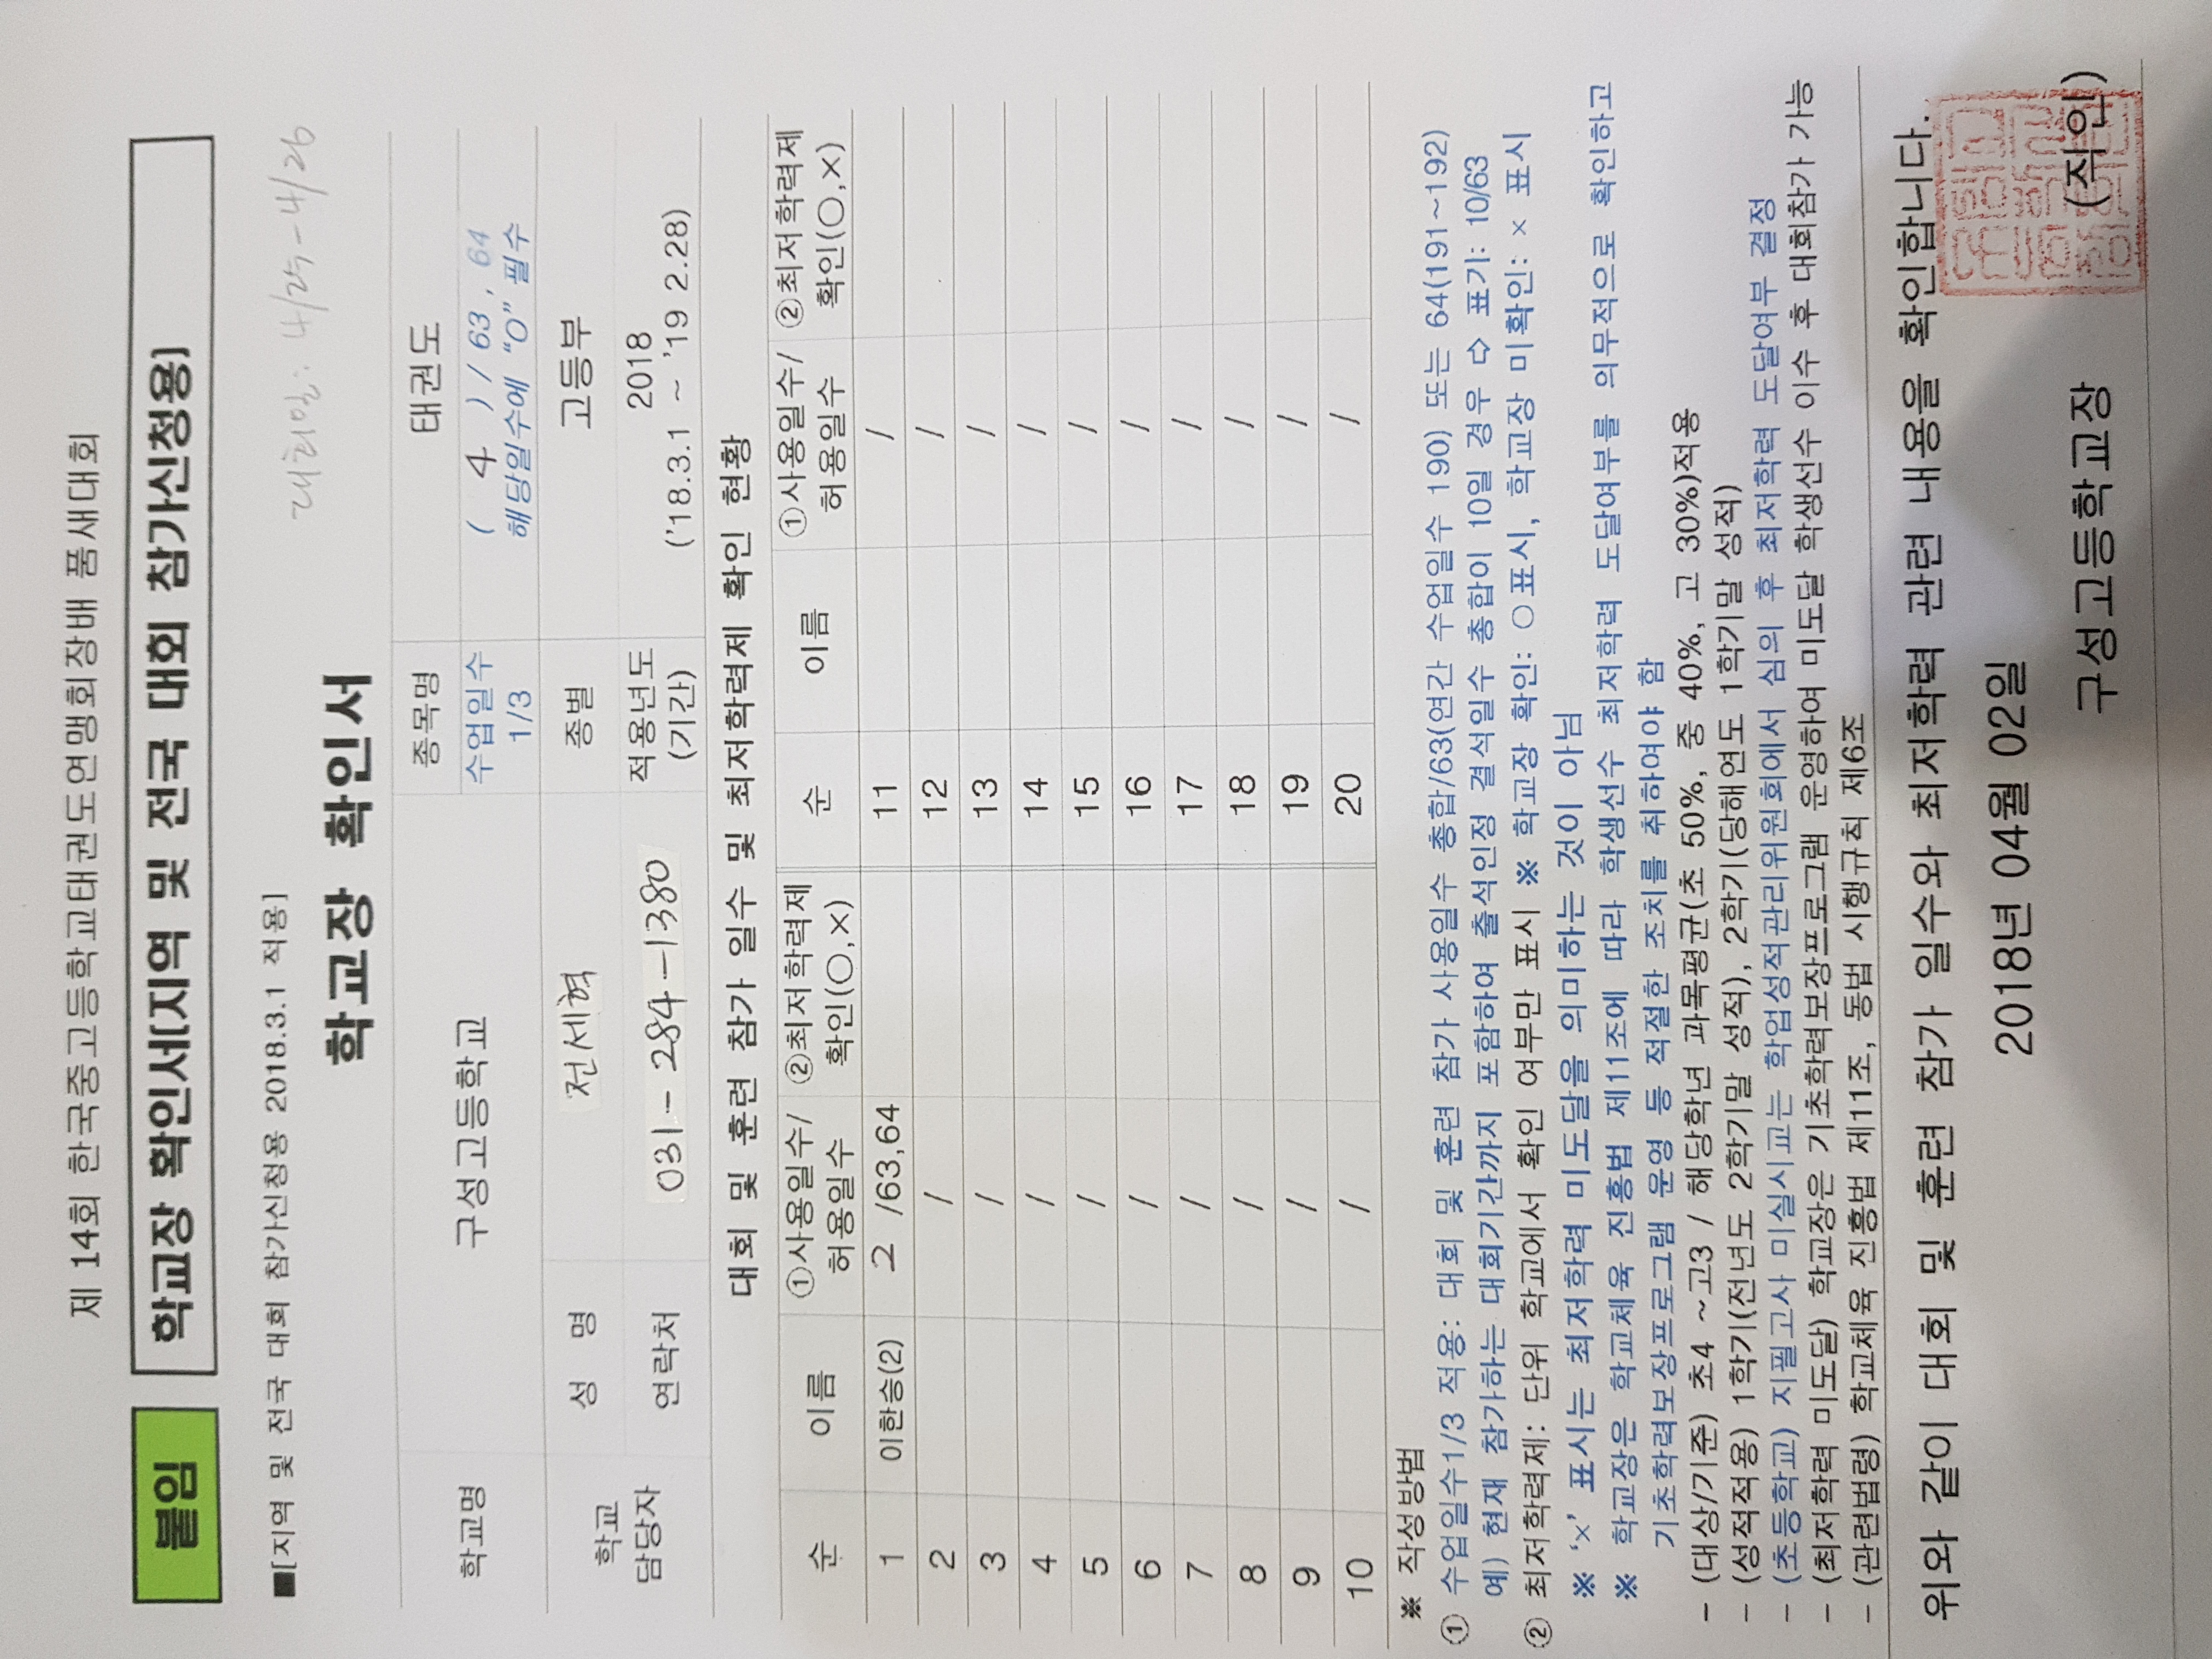 제 14회 한국중고등학교태권도연맹회장배 품새대회
붙임 학교장 확인서(지역 및 전국 대회 참가신청용)
■[지역 및 전국 대회 참가신청용 2018.3.1 적용]
대회일: 4/25-4/26
학교장 확인서
학교명 구성고등학교 종목명 태권도
수업일수 1/3 ( 4 ) / 63, 64
해당일수에 "O" 필수
학교 담당자 성 명 전세혁 종별 고등부
연락처 031-284-1380 적용년도 (기간) 2018
('18.3.1 ~ '19 2.28)
대회 및 훈련 참가 일수 및 최저학력제 확인 현황
순 이름 ①사용일수/허용일수 ②최저학력제 확인(○,×) 순 이름 ①사용일수/허용일수 ②최저학력제 확인(○,×)
1 이한승(2) 2 /63,64 11 /
2 / 12 /
3 / 13 /
4 / 14 /
5 / 15 /
6 / 16 /
7 / 17 /
8 / 18 /
9 / 19 /
10 / 20 /
※ 작성방법
① 수업일수1/3 적용: 대회 및 훈련 참가 사용일수 총합/63(연간 수업일수 190) 또는 64(191~192)
예) 현재 참가하는 대회기간까지 포함하여 출석인정 결석일수 총합이 10일 경우 ⇨ 표기: 10/63
② 최저학력제: 단위 학교에서 확인 여부만 표시 ※ 학교장 확인: ○표시, 학교장 미확인: × 표시
※ '×' 표시는 최저학력 미도달을 의미하는 것이 아님
※ 학교장은 학교체육 진흥법 제11조에 따라 학생선수 최저학력 도달여부를 의무적으로 확인하고
기초학력보장프로그램 운영 등 적절한 조치를 취하여야 함
- (대상/기준) 초4 ~고3 / 해당학년 과목평균(초 50%, 중 40%, 고 30%)적용
- (성적적용) 1학기(전년도 2학기말 성적), 2학기(당해연도 1학기말 성적)
- (초등학교) 지필고사 미실시교는 학업성적관리위원회에서 심의 후 최저학력 도달여부 결정
- (최저학력 미도달) 학교장은 기초학력보장프로그램 운영하여 미도달 학생선수 이수 후 대회참가 가능
- (관련법령) 학교체육 진흥법 제11조, 동법 시행규칙 제6조
위와 같이 대회 및 훈련 참가 일수와 최저학력 관련 내용을 확인합니다.
2018년 04월 02일
구성고등학교장 (직인)